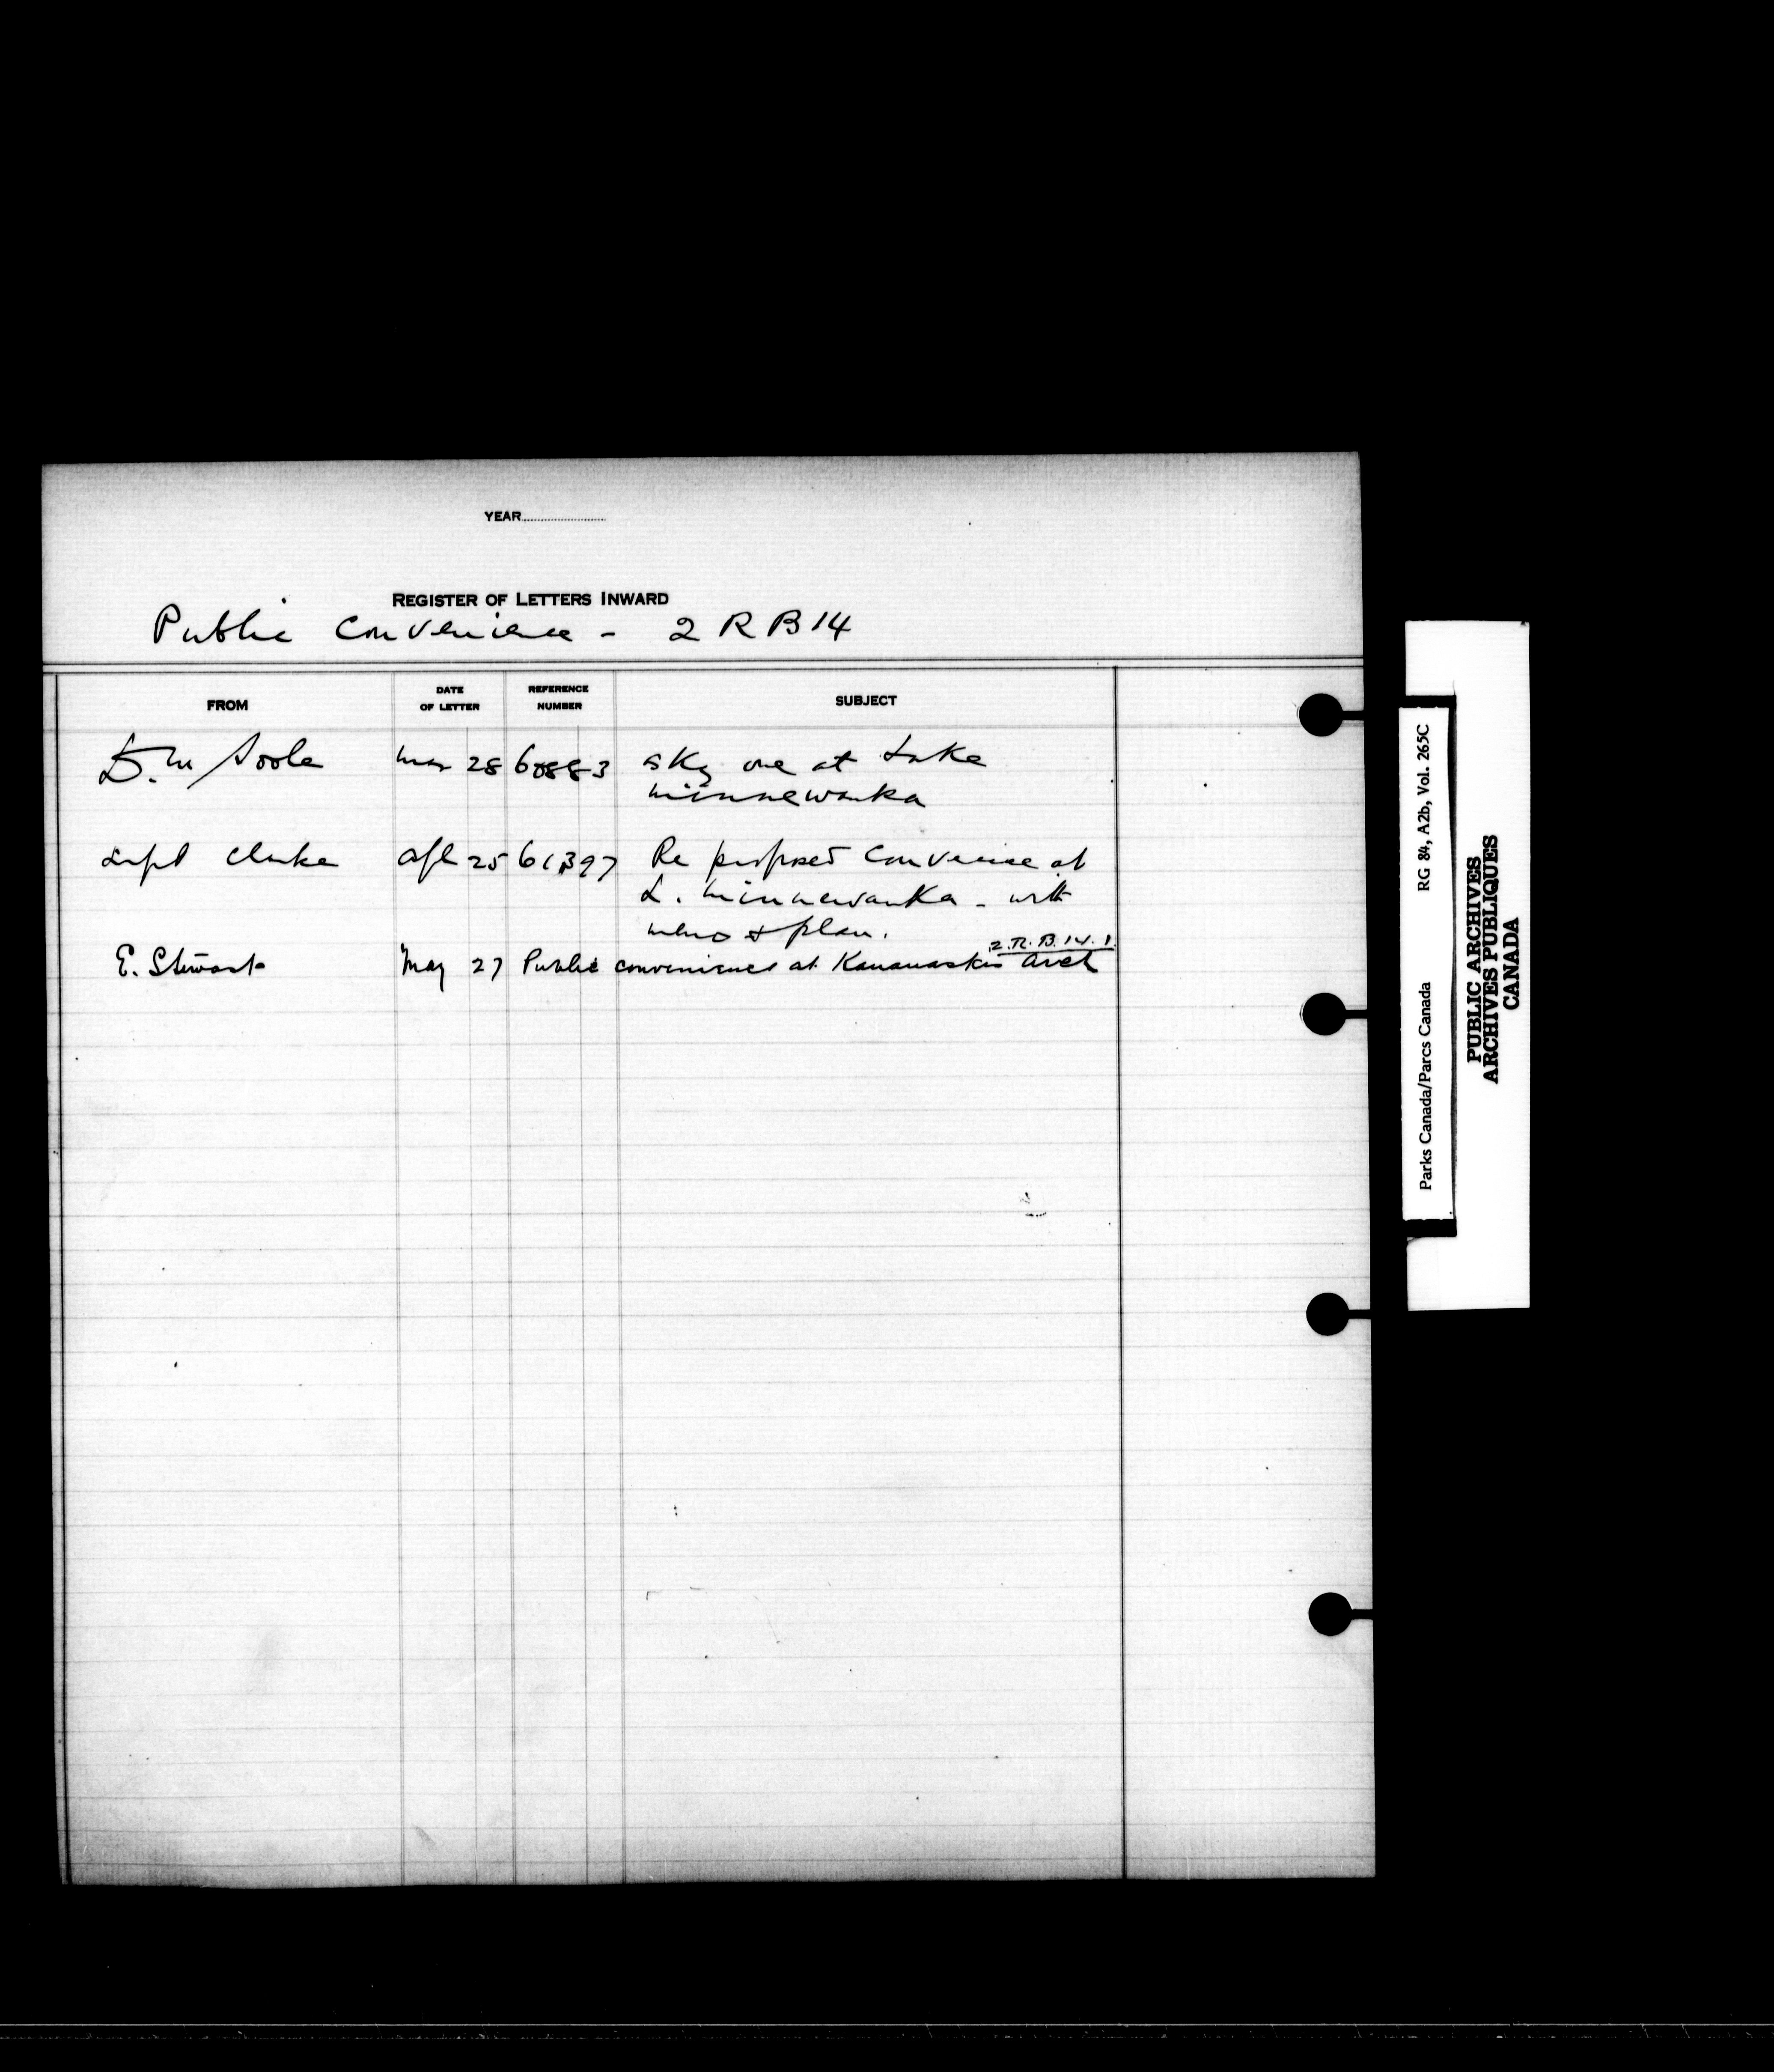 YEAR
REGISTER OF LETTERS INWARD
Public Convenience - 2 R B 14
FROM DATE OF LETTER REFERENCE NUMBER SUBJECT
D. M Soole Mar 28 60883 askg one at Lake
Minnewanka
Supt Clarke Apl 25 61397 Re proposed Convenience at
L. Minnewanka - with
memo & plan.
2. R. B. 14. 1.
E. Stewart May 27 Public conveniences at Kananaskis Arch
Parks Canada/Parcs Canada RG 84, A2b, Vol. 265C
PUBLIC ARCHIVES
ARCHIVES PUBLIQUES
CANADA